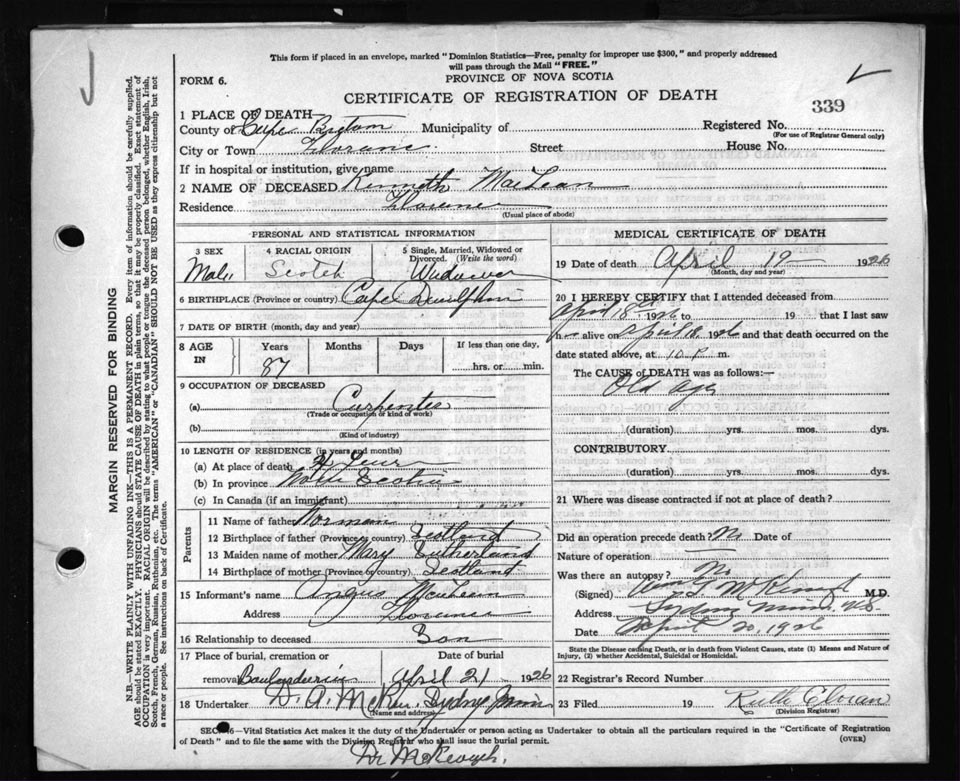 This form if placed in an envelope, marked "Dominion Statistics—Free, penalty for improper use $300," and properly addressed
will pass through the Mail "FREE."
FORM 6.
PROVINCE OF NOVA SCOTIA
CERTIFICATE OF REGISTRATION OF DEATH
339
1 PLACE OF DEATH
County of Cape Breton Municipality of Registered No.
(For use of Registrar General only)
City or Town Florence Street House No.
If in hospital or institution, give name
2 NAME OF DECEASED Kenneth MacLean
Residence Florence
(Usual place of abode)
PERSONAL AND STATISTICAL INFORMATION
3 SEX 4 RACIAL ORIGIN 5 Single, Married, Widowed or
Divorced. (Write the word)
Male Scotch Widower
6 BIRTHPLACE (Province or country) Cape
7 DATE OF BIRTH (month, day and year)
8 AGE IN Years Months Days If less than one day,
87 hrs. or min.
9 OCCUPATION OF DECEASED
(a) Carpenter
(Trade or occupation or kind of work)
(b)
(Kind of industry)
10 LENGTH OF RESIDENCE (in years and months)
(a) At place of death
(b) In province Nova Scotia
(c) In Canada (if an immigrant)
Parents
11 Name of father Norman
12 Birthplace of father (Province or country) Scotland
13 Maiden name of mother Mary Sutherland
14 Birthplace of mother (Province or country) Scotland
15 Informant's name Angus McLean
Address Florence
16 Relationship to deceased Son
17 Place of burial, cremation or Date of burial
removal April 21 1926
18 Undertaker D. A. Sydney Mines
(Name and address)
MEDICAL CERTIFICATE OF DEATH
19 Date of death April 19 1926
(Month, day and year)
20 I HEREBY CERTIFY that I attended deceased from
April 18th 1926 to 19 that I last saw
h alive on April 18, 1926 and that death occurred on the
date stated above, at 10 P m.
The CAUSE of DEATH was as follows:—
Old age
(duration) yrs. mos. dys.
CONTRIBUTORY
(duration) yrs. mos. dys.
21 Where was disease contracted if not at place of death?
Did an operation precede death? No Date of
Nature of operation
Was there an autopsy? No
(Signed) M.D.
Address Sydney Mines N.S.
Date April 20, 1926
State the Disease causing Death, or in death from Violent Causes, state (1) Means and Nature of
Injury, (2) whether Accidental, Suicidal or Homicidal.
22 Registrar's Record Number
23 Filed 19 Ruth
(Division Registrar)
SEC. 16—Vital Statistics Act makes it the duty of the Undertaker or person acting as Undertaker to obtain all the particulars required in the "Certificate of Registration
of Death" and to file the same with the Division Registrar who shall issue the burial permit.
(OVER)
Dr McKeough.
MARGIN RESERVED FOR BINDING
N.B.—WRITE PLAINLY WITH UNFADING INK—THIS IS A PERMANENT RECORD. Every item of information should be carefully supplied.
AGE should be stated EXACTLY. PHYSICIANS should STATE CAUSE OF DEATH in plain terms, so that it may be properly classified. Exact statement of
OCCUPATION is very important. RACIAL ORIGIN will be described by stating to what people or tongue the deceased person belonged, whether English, Irish,
Scotch, French, German, Russian, Ruthenian, etc. The terms "AMERICAN" or "CANADIAN" SHOULD NOT BE USED as they express citizenship but not
a race or people. See instructions on back of Certificate.